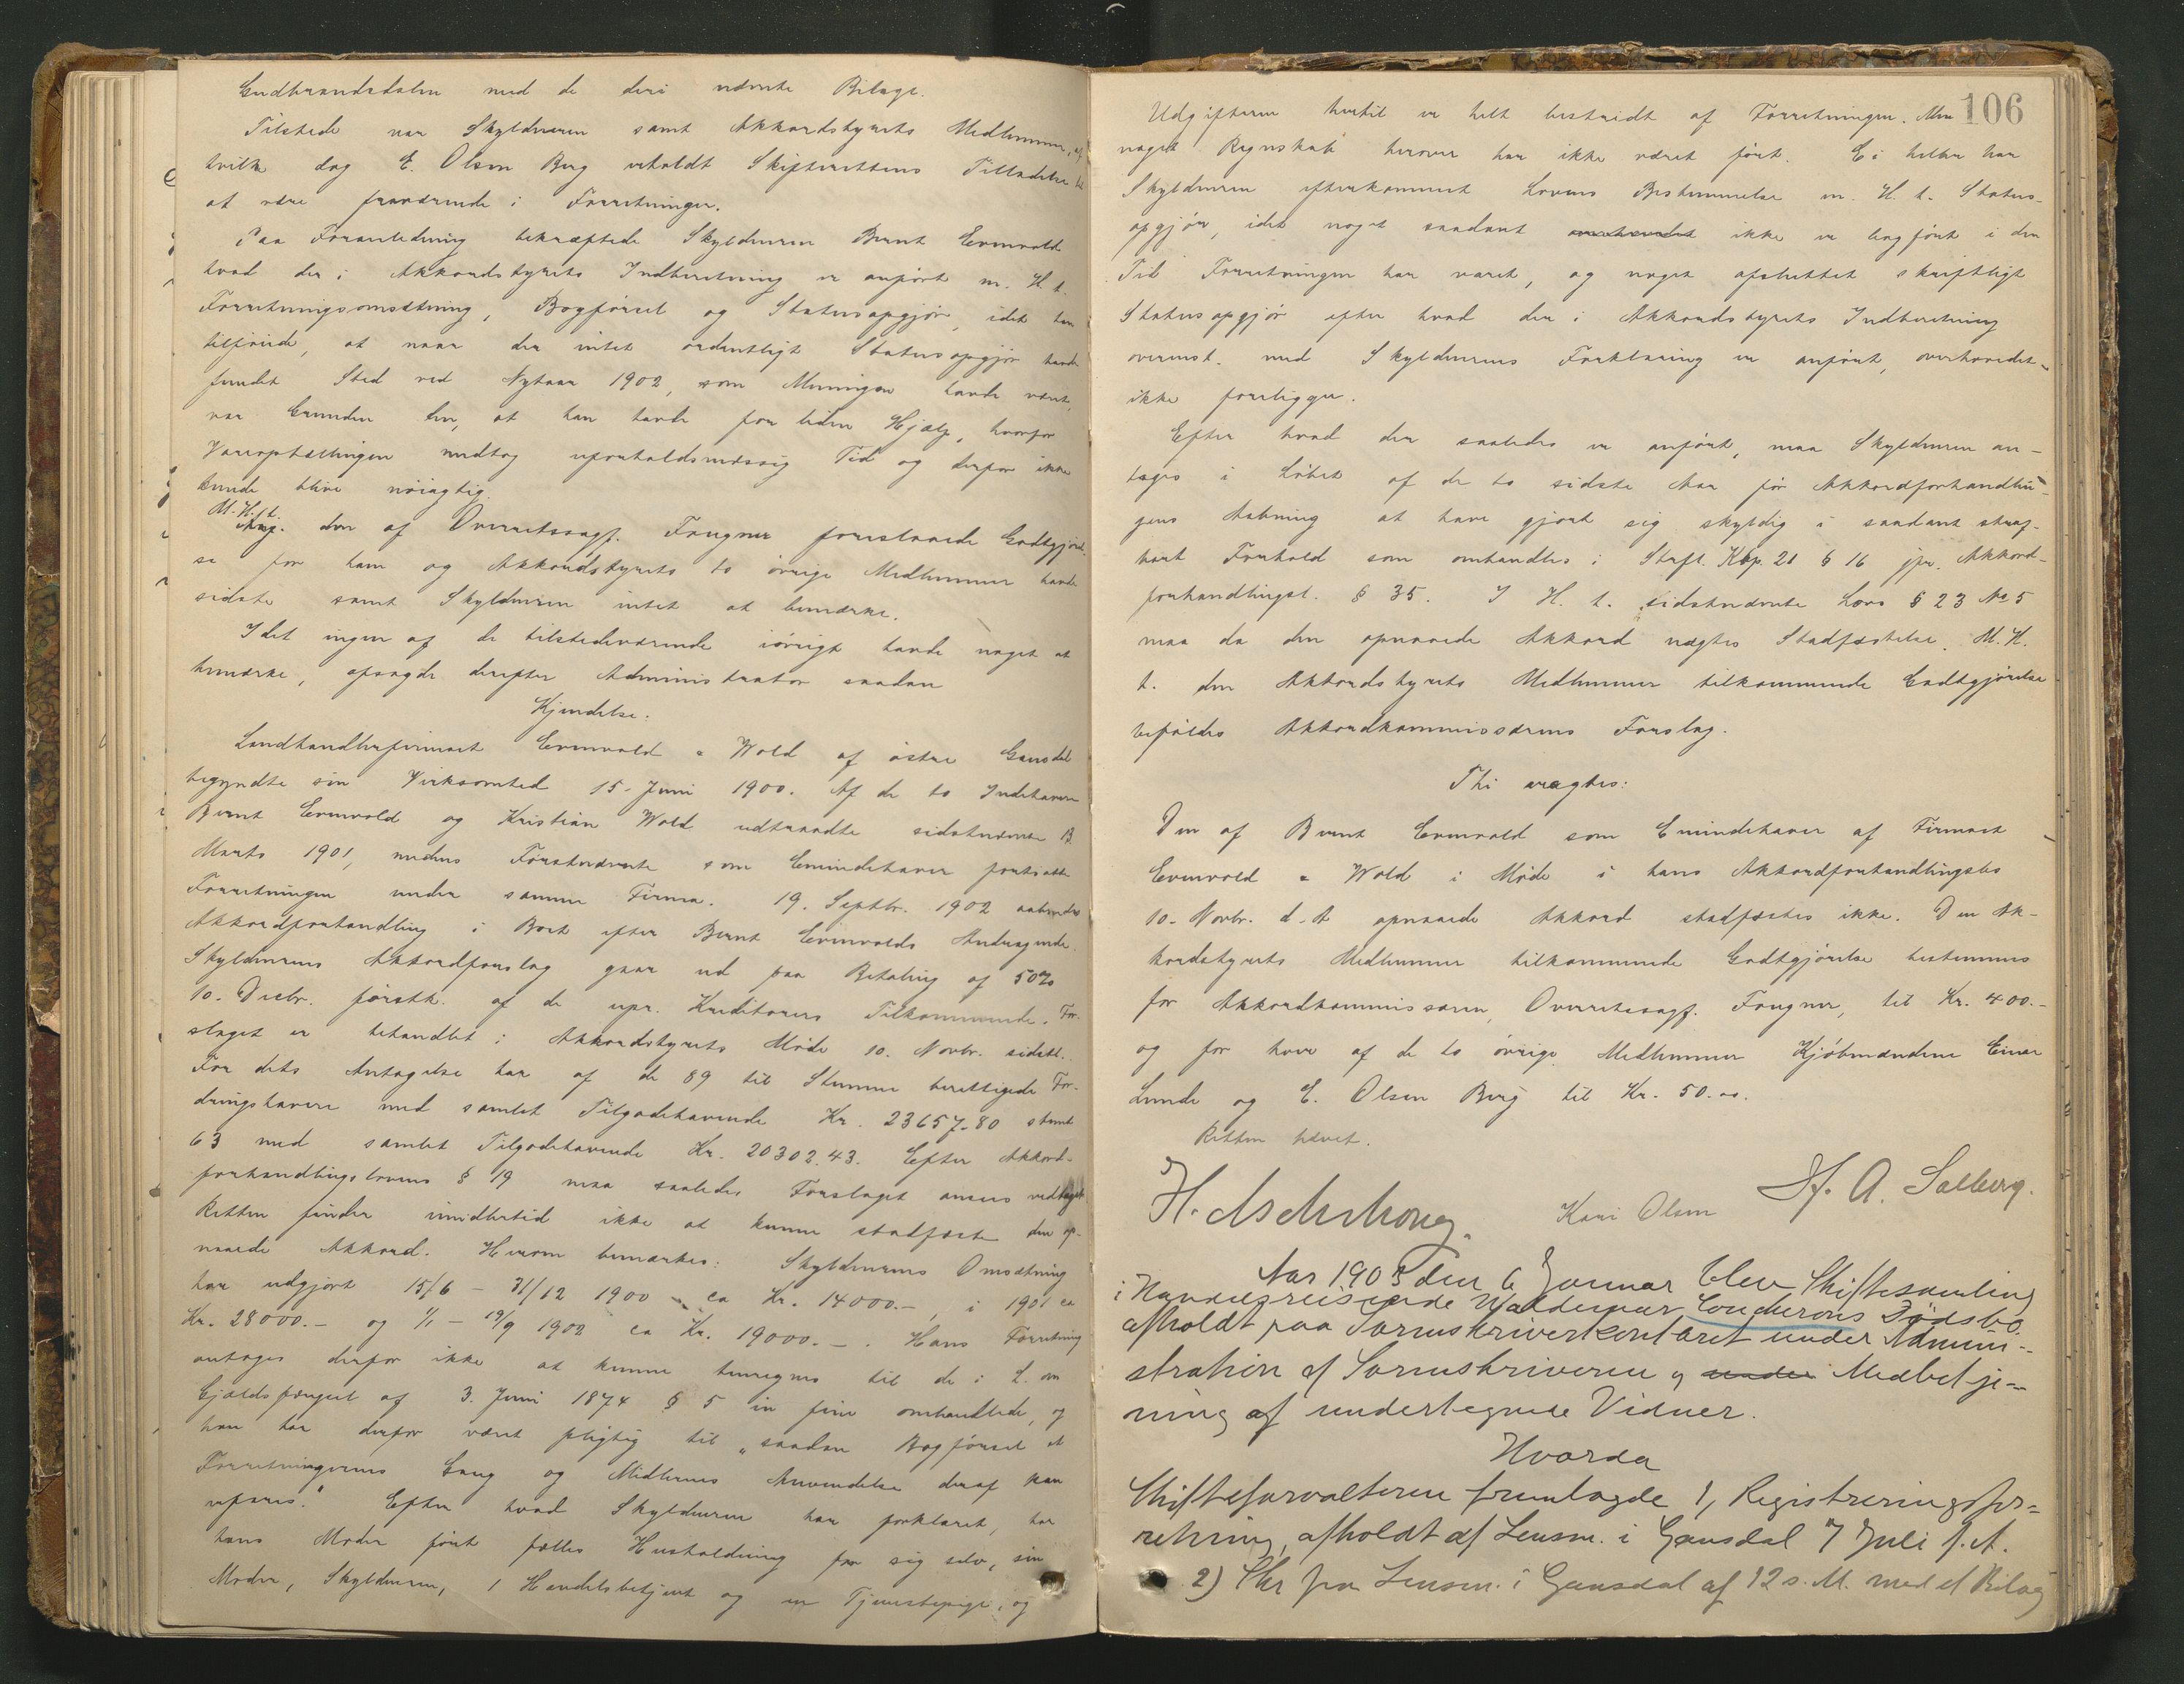 Gudbrandsdalen med de deri nævnte Bilage.
Tilstede var Skyldneren samt Akkordstyrets Medlemmer, af
hvilke dog E. Olsen Berg erholdt Skifterettens Tilladelse til
at være fraværende i Forretningen.
Paa Foranledning bekræftede Skyldneren Bernt Evenvold
hvad der i Akkordstyrets Indberetning er anført m. H. t.
Forretningsomsætning, Bogførsel og Statusopgjør, idet han
tilføiede, at naar der intet ordentligt Statusopgjør havde
fundet Sted ved Nytaar 1902, som Meningen havde været,
var Grunden den, at han havde for liden Hjælp, hvorfor
Vareoptællingen medtog uforholdsmæssig Tid og derfor ikke
kunde blive nøiagtig.
M. H. t. den af Overretssagf. Fougner foreslaaede Godtgjørel-
se for ham og Akkordstyrets to øvrige Medlemmer havde
sidste samt Skyldneren intet at bemærke.
Idet ingen af de tilstedeværende iøvrigt havde noget at
bemærke, afsagde derefter Administrator saadan
Kjendelse:
Landhandlerfirmaet Evenvold & Wold af østre Gausdal
begyndte sin Virksomhed 15. Juni 1900. Af de to Indehavere
Bernt Evenvold og Kristian Wold udtraadte sidstnævnte 13
Marts 1901, medens Førstnævnte som Eneindehaver fortsatte
Forretningen under samme Firma. 19. Septbr. 1902 aabnedes
Akkordforhandling i Boet efter Bernt Evenvolds Andragende.
Skyldnerens Akkordforslag gaar ud paa Betaling af 50%
10. Decbr. førstk. af de upr. Kreditorers Tilkommende. For-
slaget er behandlet i Akkordstyrets Møde 10. Novbr. sidstl.
For dets Antagelse har af de 89 til Stemme berettigede For-
dringshavere med samlet Tilgodehavende Kr. 23657.80 stemt
63 med samlet Tilgodehavende Kr. 20302.43. Efter Akkord-
forhandlingslovens § 19 maa saaledes Forslaget ansees vedtaget.
Retten finder imidlertid ikke at kunne stadfæste den op-
naaede Akkord. Herom bemærkes: Skyldnerens Omsætning
har udgjort 15/6 - 31/12 1900 ca Kr. 14000.-, i 1901 ca
Kr. 28000.- og 1/1 - 19/9 1902 ca Kr. 19000.-. Hans Forretning
antages derfor ikke at kunne henregnes til de i L. om
Gjældsfængsel af 3. Juni 1874 § 5 in fine omhandlede, og
han har derfor været pligtig til "saadan Bogførsel at
Forretningernes Gang og Midlernes Anvendelse deraf kan
erfares." Efter hvad Skyldneren har forklaret, har
hans Moder ført fælles Husholdning for sig selv, sin
Moder, Skyldneren, 1 Handelsbetjent og en Tjenestepige, og
106
Udgifterne hertil er helt bestridt af Forretningen. Men
noget Regnskab herover har ikke været ført. Ei heller har
Skyldneren efterkommet Lovens Bestemmelse m. H. t. Status-
opgjør, idet noget saadant ikke er bogført i den
Tid Forretningen har varet, og noget afsluttet skriftligt
Statusopgjør efter hvad der i Akkordstyrets Indberetning
overenst. med Skyldnerens Forklaring er anført, overhovedet
ikke foreligger.
Efter hvad der saaledes er anført, maa Skyldneren an-
tages i Løbet af de to sidste Aar før Akkordforhandlin-
gens Aabning at have gjort sig skyldig i saadant straf-
bart Forhold som omhandles i Strfl. Kap. 21 § 16 jfr. Akkord-
forhandlingsl. § 35. I H. t. sidstnævnte Lovs § 23 No 5
maa da den opnaaede Akkord nægtes Stadfæstelse. M. H.
t. den Akkordstyrets Medlemmer tilkommende Godtgjørelse
bifaldes Akkordkommissærens Forslag.
Thi eragtes:
Den af Bernt Evenvold som Eneindehaver af Firmaet
Evenvold & Wold i Møde i hans Akkordforhandlingsbo
10. Novbr. d. A. opnaaede Akkord stadfæstes ikke. Den Ak-
kordstyrets Medlemmer tilkommende Godtgjørelse bestemmes
for Akkordkommissæren, Overretssagf. Fougner, til Kr. 400.-
og for hver af de to øvrige Medlemmer Kjøbmændene Einar
Lunde og E. Olsen Berg til Kr. 50.00.
Retten hævet.
H. Aschehoug. Kari Olsen H. A. Solberg.
Aar 1903 den 6 Januar blev Skiftesamling
i Handelsreisende Waldemar Dødsbo
afholdt paa Sorenskriverkontoret under Admini-
stration af Sorenskriveren og under Medbetje-
ning af undertegnede Vidner.
Hvorda
Skifteforvalteren fremlagde 1, Registreringsfor-
retning, afholdt af Lensm. i Gausdal 7 Juli f. A.
2) Skr fra Lensm. i Gausdal af 12 s. M. med et Bilag